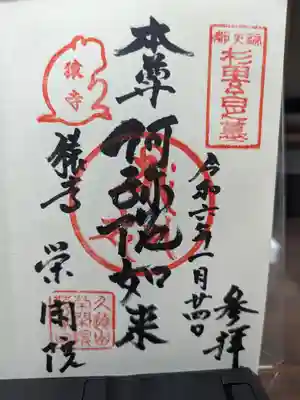 杉田玄白之墓
参拝
令和六年一月廿四日
本尊 阿弥陀如来
猿寺
猿寺 栄閑院